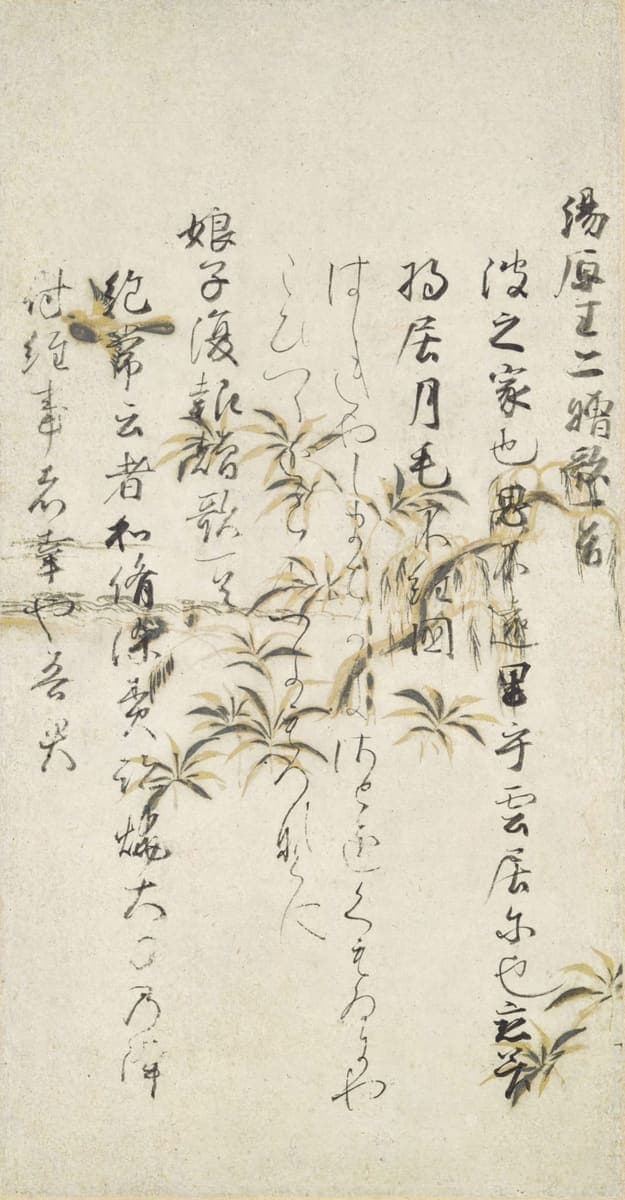 湯原王亦贈歌一首
波之家也思不遠里乎雲居尓也恋管
将居月毛不経国
はしきやしまちかきさとをくもゐにや
こひつゝをらむつきもへなくに
娘子復報贈歌一首
絶常云者和備染責跡焼大刀乃隔
付経事者幸也吾君